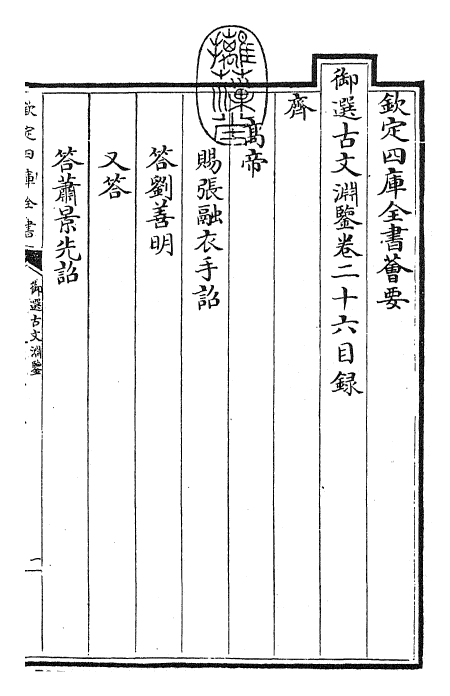 欽定四庫全書薈要
御選古文淵鑒卷二十六目録
齊
高帝
賜張融衣手詔
答劉善明
又答
答蕭景先詔
欽定四庫全書
御選古文淵鑒
一